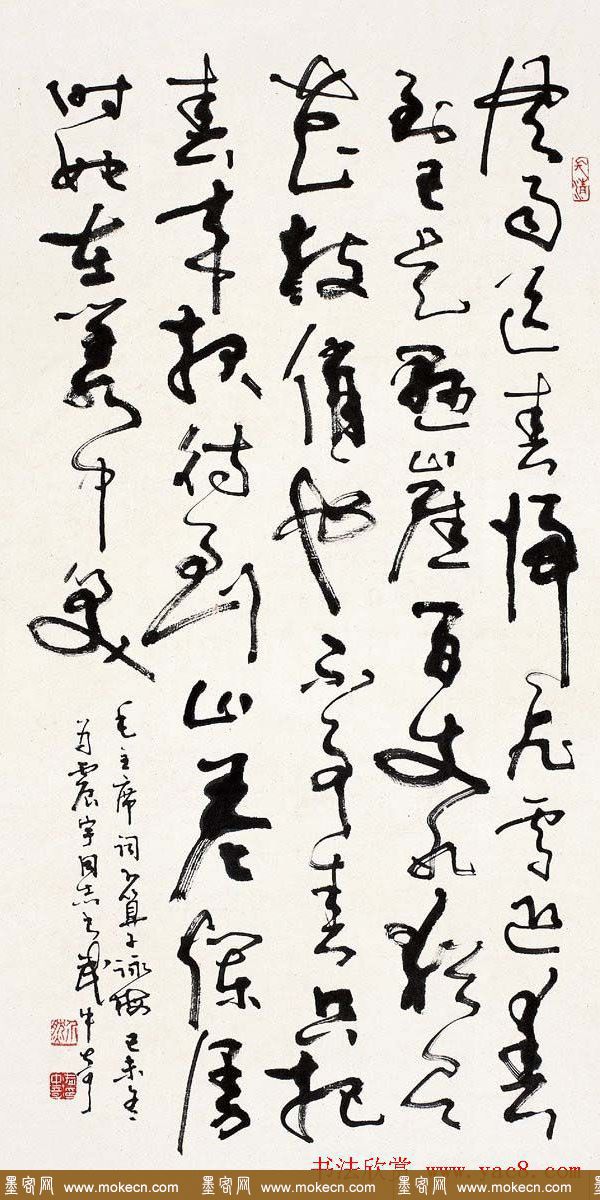 风雨送春归飞雪迎春
到已是悬崖百丈冰犹有
花枝俏俏也不争春只把
春来报待到山花烂漫
时她在丛中笑
毛主席词卜算子咏梅 己未冬
为震宇同志 武中奇
书法欣赏 www.yac8.com
墨客网 www.mokecn.com 墨客网 www.mokecn.com 墨客网 www.mokecn.com